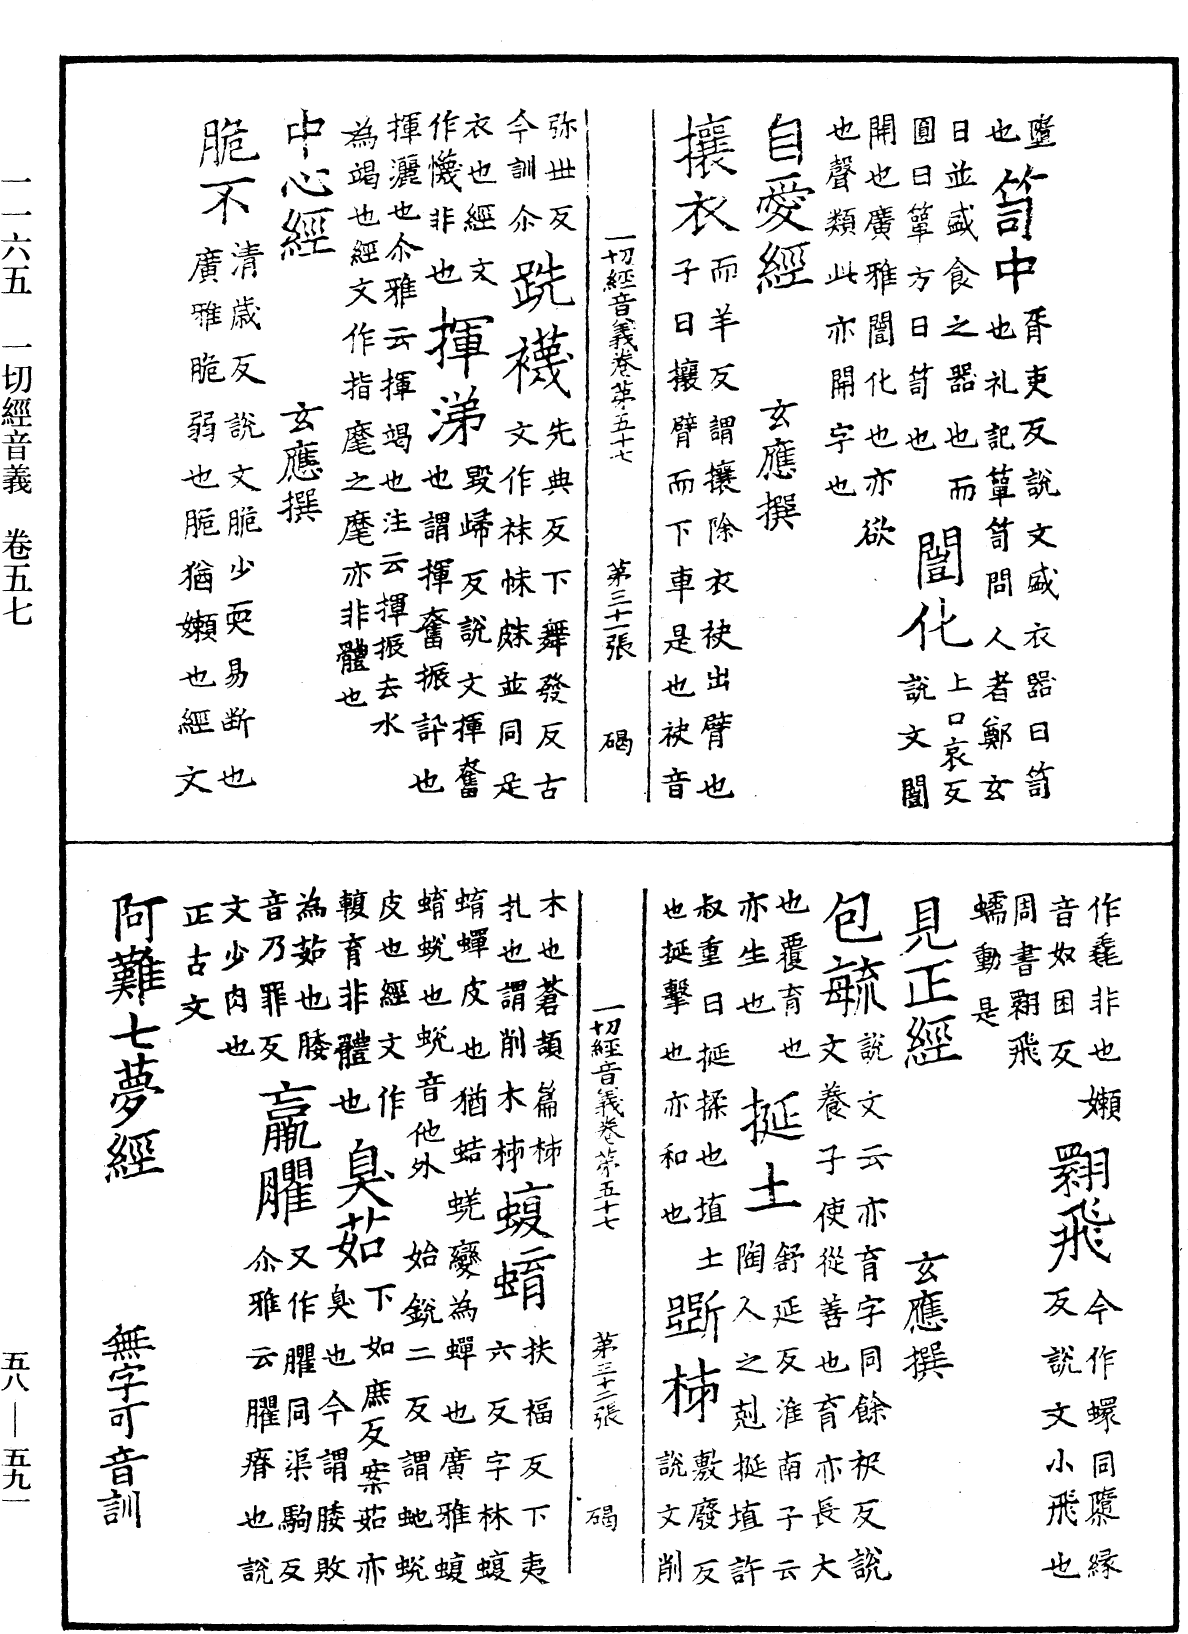 墮
也笥中胥吏反說文盛衣器曰笥
也礼記簞笥問人者鄭玄
曰並盛食之器也而
圓曰簞方曰笥也闓化上口哀反
說文闓
開也廣雅闓化也亦欲
也聲類此亦開字也
自愛經 玄應撰
攘衣而羊反謂攘除衣袂出臂也
子曰攘臂而下車是也袂音
一切經音義卷第五十七 第三十一張 碣
弥世反
今訓尒跣襪先典反下舞發反古
文作袜帓䍪並同足
衣也經文
作懱非也揮涕毀歸反說文揮奮
也謂揮奮振訐也
揮灑也尒雅云揮竭也注云揮振去水
為竭也經文作指麾之麾亦非體也
中心經 玄應撰
脆不清歲反說文脆少耎易断也
廣雅脆弱也脆猶嬾也經文
作毳非也嬾
音奴困反翾飛今作蠉同隳緣
反說文小飛也
周書翾飛
蠕動是
見正經 玄應撰
包毓說文云亦育字同餘枳反說
文養子使從善也育亦長大
也覆育也
亦生也挻土舒延反淮南子云
陶人之剋挻埴許
叔重曰挻揉也埴土
也挻擊也亦和也斵柹敷廢反
說文削
一切經音義卷第五十七 第三十二張 碣
木也蒼頡篇柹
扎也謂削木柹蝮蜟扶福反下夷
六反字林蝮
蜟蟬皮也猶蛣蜣變為蟬也廣雅蝮
蜟蛻也蛻音他外始銳二反謂虵蛻
皮也經文作
輹育非體也臭茹下如庶反案茹亦
臭也今謂腇敗
為茹也腇
音乃罪反羸臞又作臞同渠駒反
尒雅云臞瘠也說
文少肉也
正古文
阿難七夢經 無字可音訓
一一六五 一切經音義 卷五七
五八—五九一